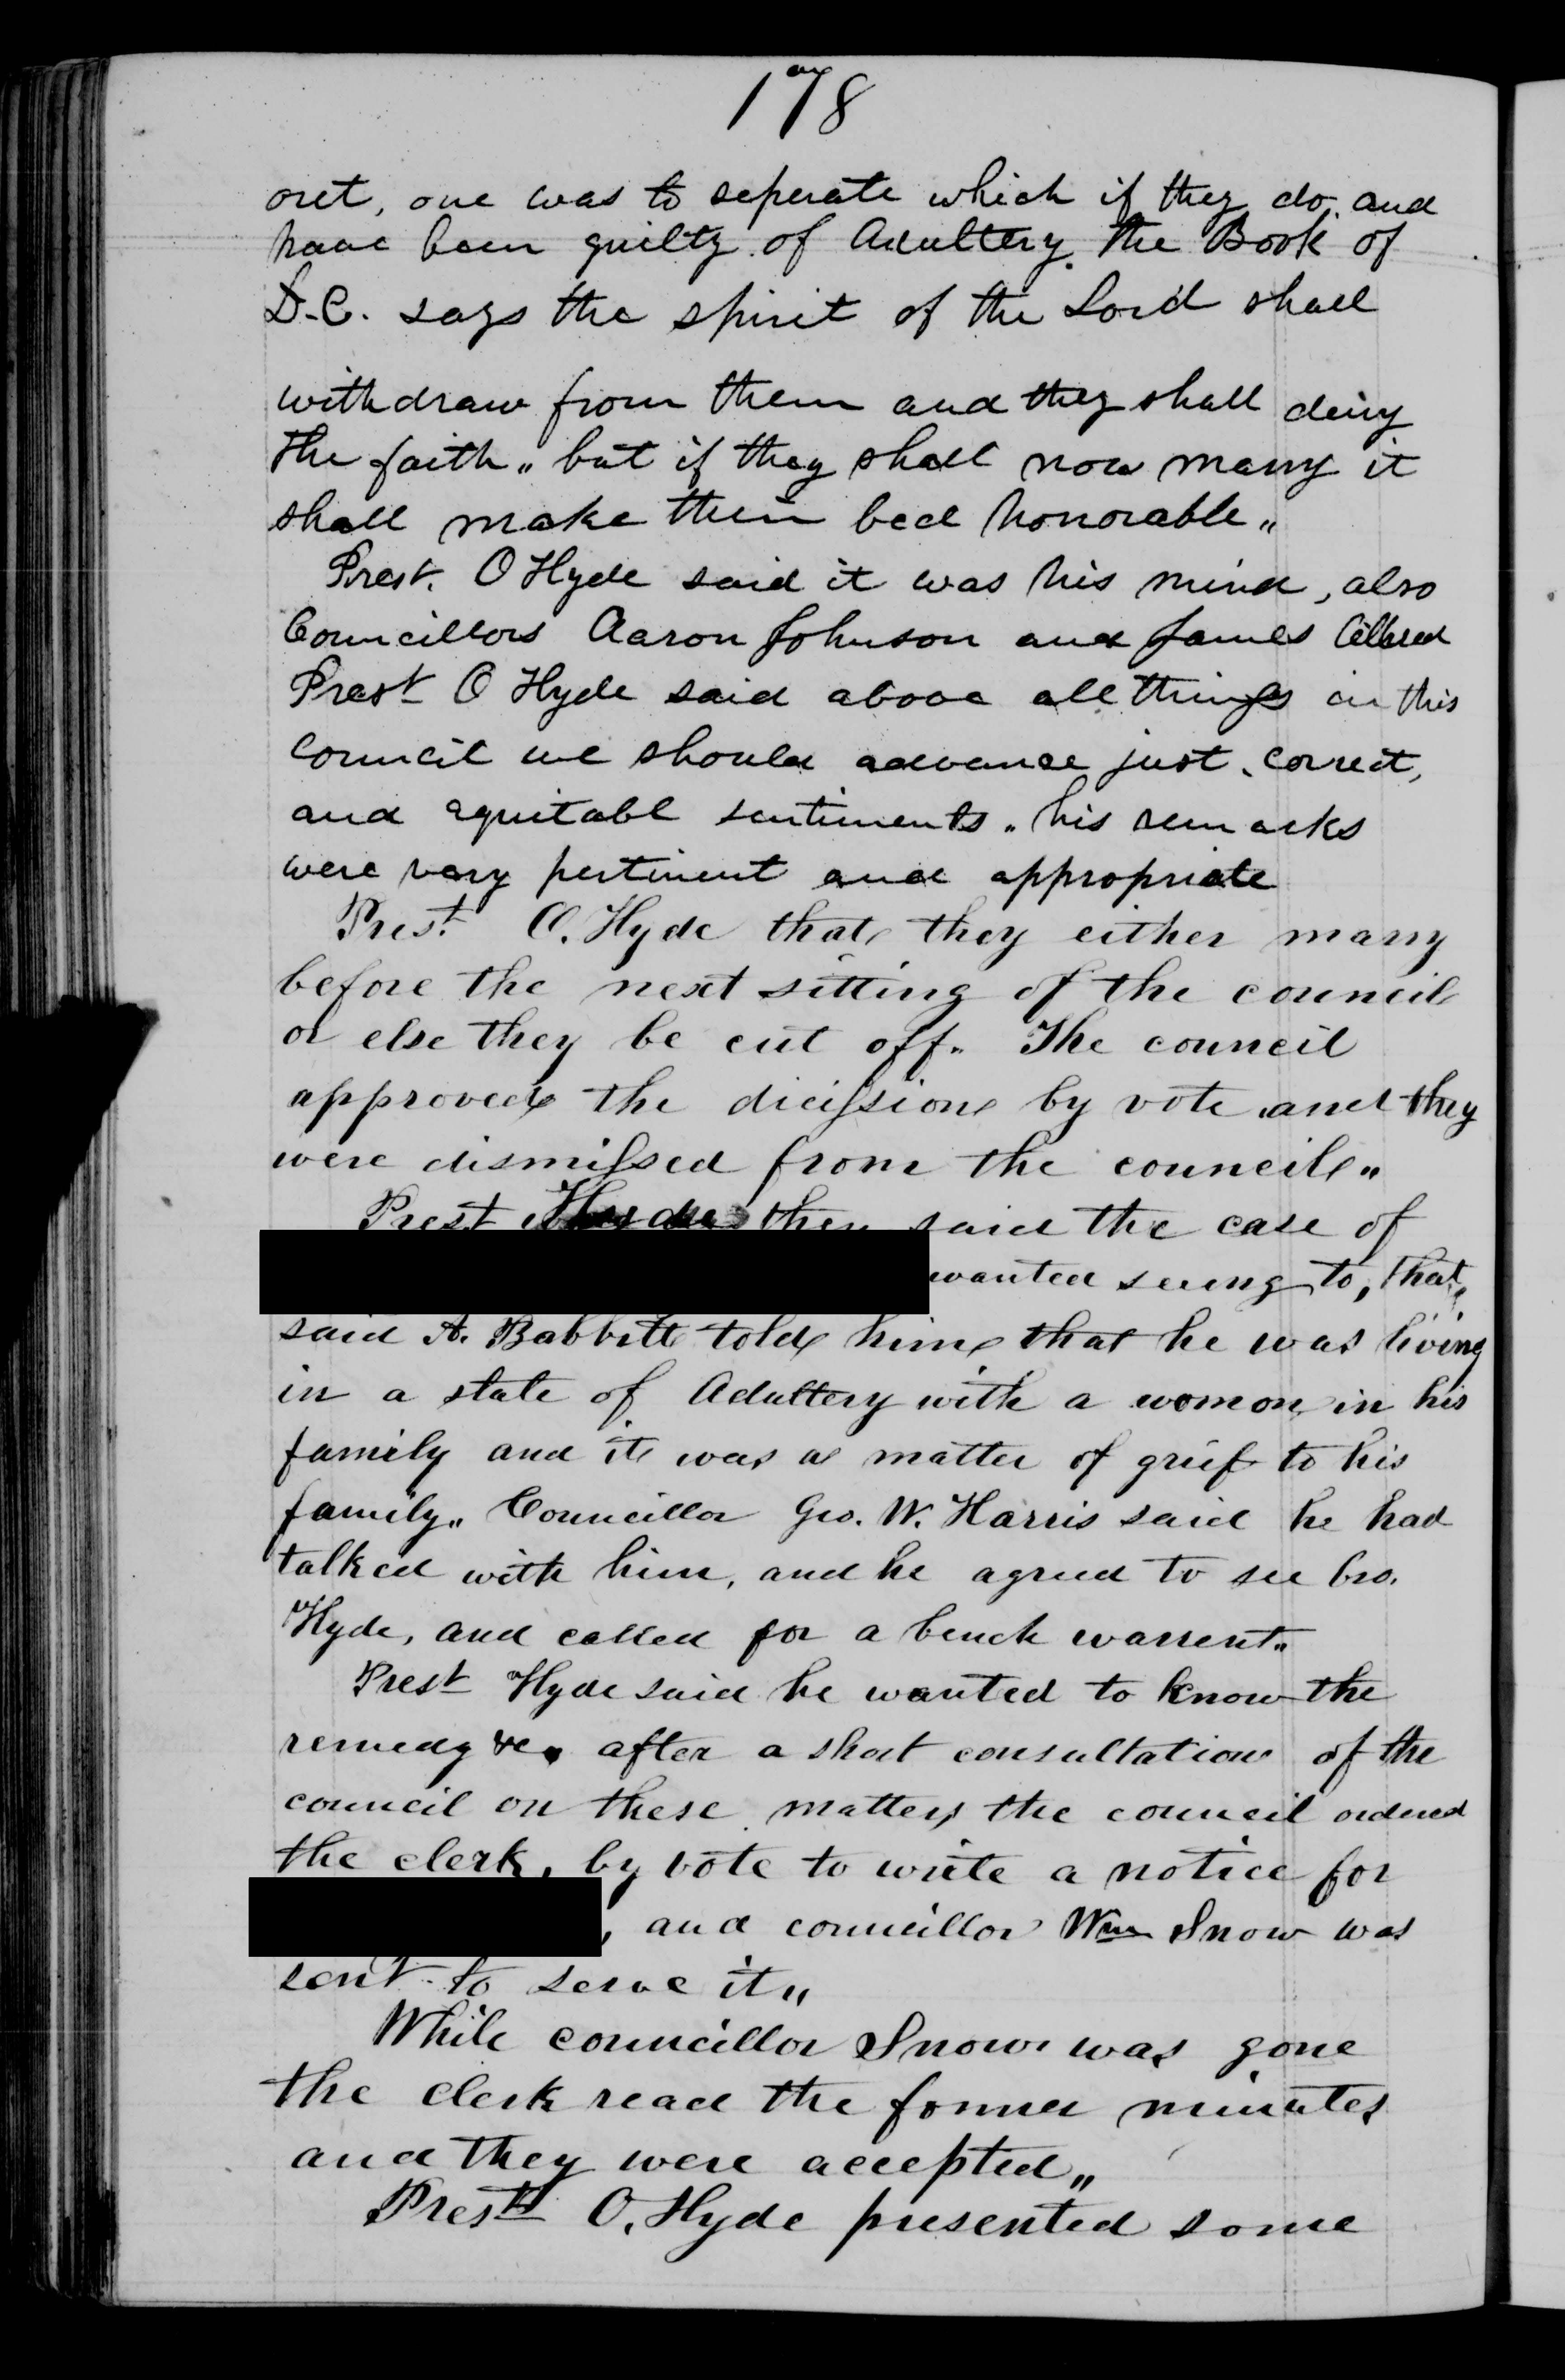 178
out, one was to seperate which if they do, and
have been guilty of Adultery. the Book of
D.C. says the spirit of the Lord shall
withdraw from them and they shall deny
the faith „ but if they shall now marry it
shall make their bed honorable „
Prest. O Hyde said it was his mind, also
Councillors Aaron Johnson and James Allred
Prest O Hyde said above all things in this
council we should advance just, correct,
and equitabl sentiments „ his remarks
were very pertinent and appropriate
Prest. O. Hyde that they either marry
before the next sitting of the council
or else they be cut off „ The council
approved the dicission by vote and they
were dismissed from the council „
Prest Hyde then said the case of
wanted seeing to, that
said A. Babbitt told him that he was living
in a state of Adultery with a woman in his
family and it was a matter of grief to his
family „ Councillor Geo. W. Harris said he had
talked with him, and he agreed to see bro.
Hyde, and called for a bench warrent „
Prest Hyde said he wanted to know the
remedy &c. after a short consultation of the
council on these matters the council ordered
the clerk, by vote to write a notice for
, and councillor Wm Snow was
sent to serve it „
While councillor Snow was gone
the clerk read the former minutes
and they were accepted „
Prest O. Hyde presented some